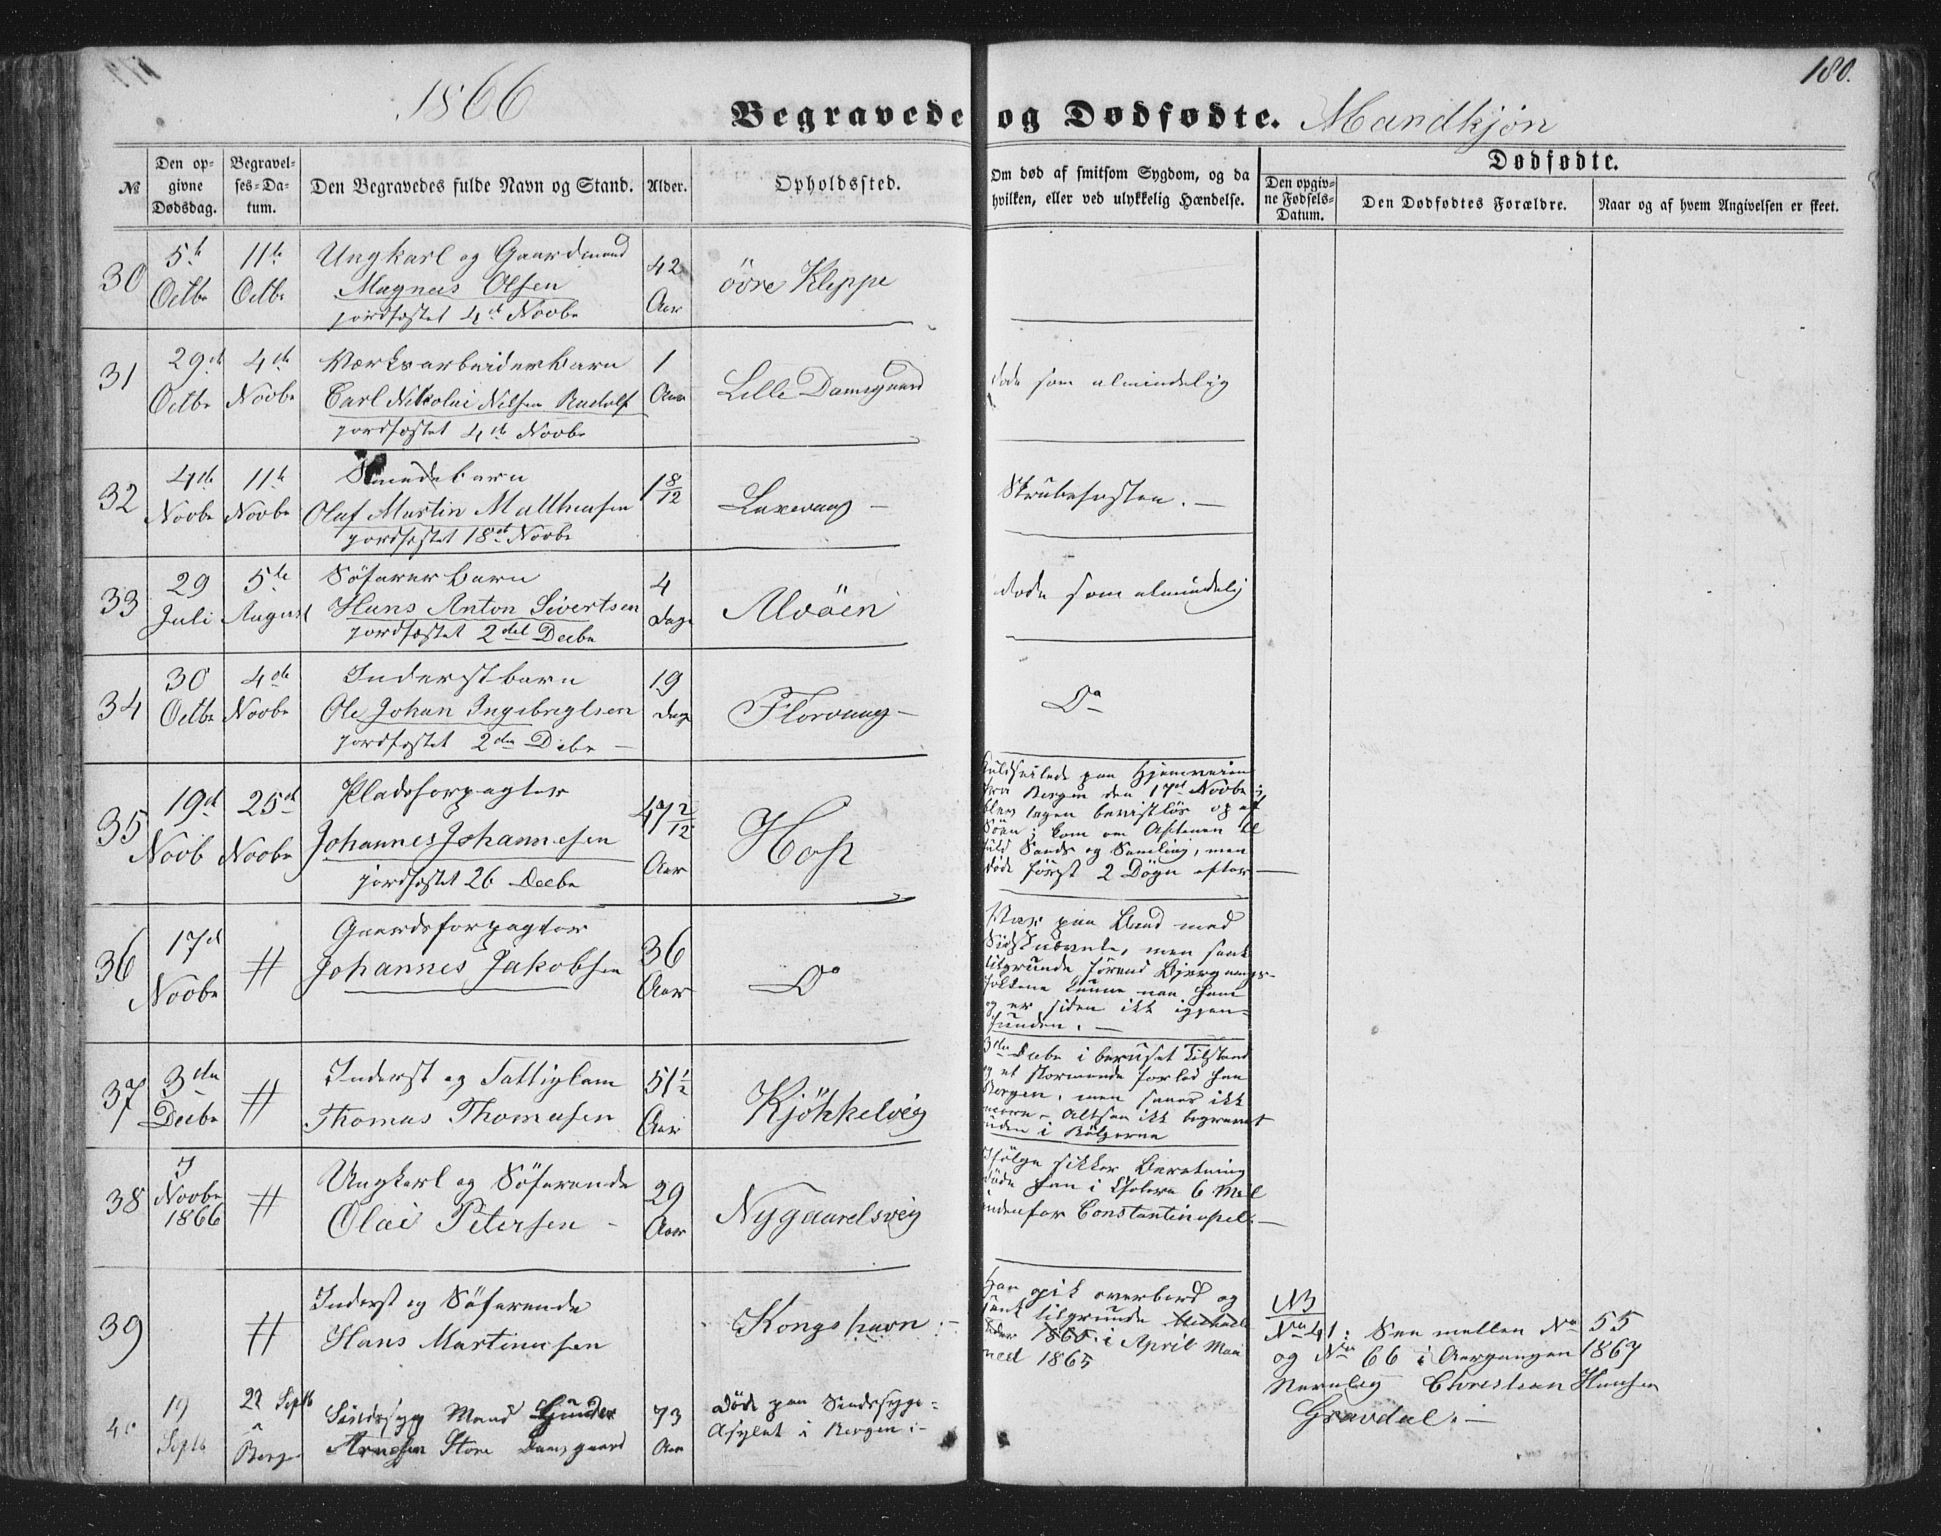 1866
Begravede og Dødfødte. Mandkjøn
180.
№
Den opgivne Dødsdag.
Begravelses-Datum.
Den Begravedes fulde Navn og Stand.
Alder.
Opholdssted.
Om død af smitsom Sygdom, og da hvilken, eller ved ulykkelig Hændelse.
Dødfødte.
Den opgivne Fødsels-Datum.
Den Dødfødtes Forældre.
Naar og af hvem Angivelsen er skeet.
30
5te Octbr
11te Octbr
Ungkarl og Gaardmand
Magnus Olsen
jordfæstet 4de Novbr
42 Aar
övre Kleppe
31
29de Octbr
4de Novbr
Værksarbeiderbarn
Carl Nikolai Nilsen Rudolf
jordfæstet 4de Novbr
1 Aar
Lille Damsgaard
døde som almindelig
32
4de Novbr
11te Novbr
Smedebarn
Olaf Martin Matthiasen
jordfæstet 18de Novbr
1 8/12
Laxevaag –
Strubehosten. –
33
29 Juli
5te August
Søfarerbarn
Hans Anton Sivertsen
jordfæstet 2den Decbr
4 Dage
Alvöen
døde som almindelig
34
30 Octbr
4de Novbr
Inderstbarn
Ole Johan Ingebrigtsen
jordfæstet 2den Debr –
19 Dage
Florvaag –
Do
35
19de Novb
25de Novbr
Pladsforpagter
Johannes Johannesen
jordfæstet 26 Decbr
47 2/12 Aar
Hop
Kuldseilede paa Hjemveien
fra Bergen den 17de Novbr;
blev tagen bevistløs op af
Søen; kom om Aftenen til
fuld Sands og Samling, men
døde først 2 Døgn efter –
36
17de Novbr
#
Gaardsforpagter
Johannes Jakobsen
36 Aar
Do
Var paa Baad med
Sidstnævnte, men sank
tilgrunde førend Bjergnings-
folkene kunne naa ham
og er siden ikk igjen-
funden. –
37
3die Decbr
#
Inderst og Fattiglem
Thomas Thomasen
51 1/2 Aar
Kjökkelvig
3die Decbr i beruset Tilstand
og et stormende forlod han
Bergen, men saaes ikk
meere – Altsaa ikk begravet
uden i Bølgerne
38
7 Novbr 1866
#
Ungkarl og Søfarende
Olai Petersen –
29 Aar
Nygaardsvig
Ifølge sikker Beretning
døde han i Cholera 6 Mil
indenfor Constantinopel. –
39
#
Inderst og Søfarende
Hans Martinusen
Kongshavn. –
Han gik overbord og
sank tilgrunde
1865. i April Maa
ned 1865
NB
No 41: See mellem No 55
og No 66 i Aargangen 1867
Navnlig Christian Hansen
Gravdal. –
40
19 Septb
22 Septb
Bergen
Sindssyg Mand Gunder
Arnesen Store Damsgaard
73 Aar
Døde paa Sindssyge-
Asylet i Bergen. –